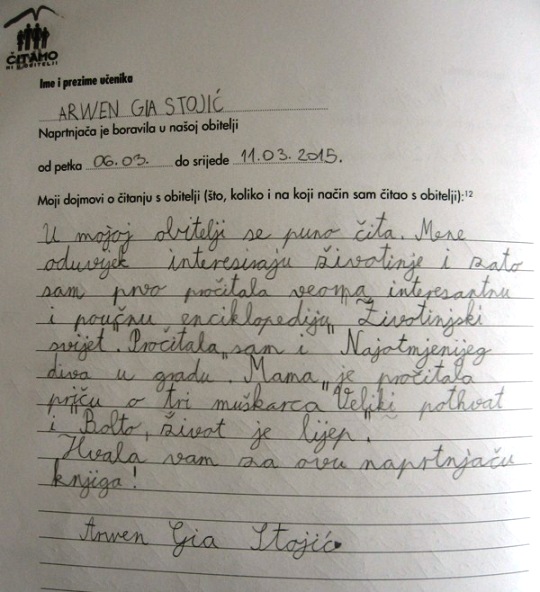 ČITAMO
MI U OBITELJI
Ime i prezime učenika
ARWEN GIA STOJIĆ
Naprtnjača je boravila u našoj obitelji
od petka 06.03. do srijede 11.03.2015.
Moji dojmovi o čitanju s obitelji (što, koliko i na koji način sam čitao s obitelji):¹²
U mojoj obitelji se puno čita. Mene
oduvijek interesiraju životinje i zato
sam prvo pročitala veoma interesantnu
i poučnu enciklopediju „Životinjski
svijet. Pročitala „sam i Najotmjenijeg
diva u gradu. Mama „je pročitala
priču o tri muškarca Veliki pothvat
i Bolto, život je lijep.
Hvala vam za ovu naprtnjaču
knjiga!
Arwen Gia Stojić